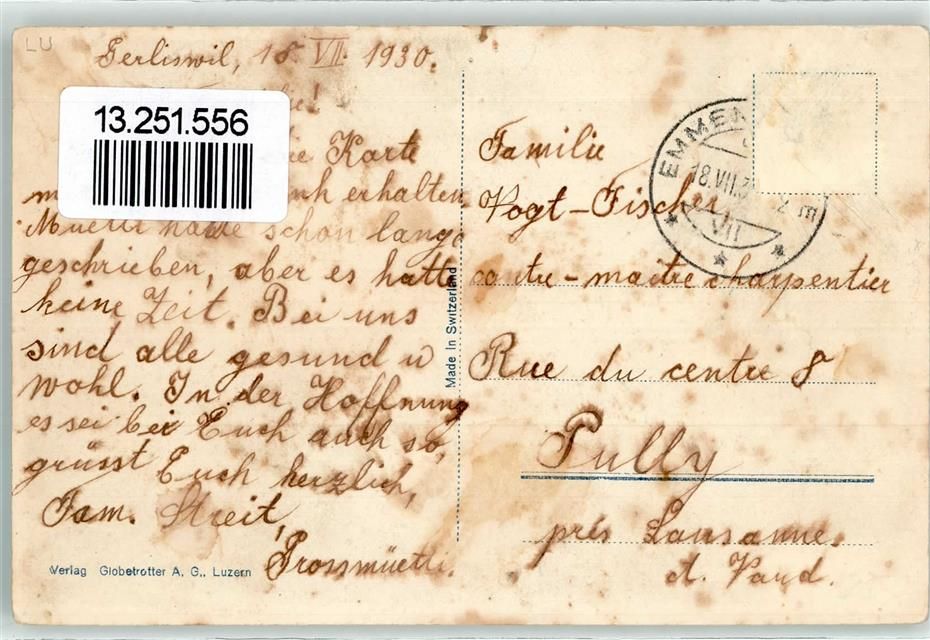 LU
Gerliswil, 18. VII. 1930.
13.251.556
Karte
erhalten.
Muetti hätte schon lange
geschrieben, aber es hatte
keine Zeit. Bei uns
sind alle gesund u
wohl. In der Hoffnung
es sei bei Euch auch so,
grüsst Euch herzlich,
Fam. Streit,
Grossmüetti.
Verlag Globetrotter A. G., Luzern
Made in Switzerland
EMMEN
18.VII.3
VII
Familie
Vogt-Fischer
contre-maitre charpentier
Rue du centre 8
Pully
près Lausanne.
ct. Vaud.